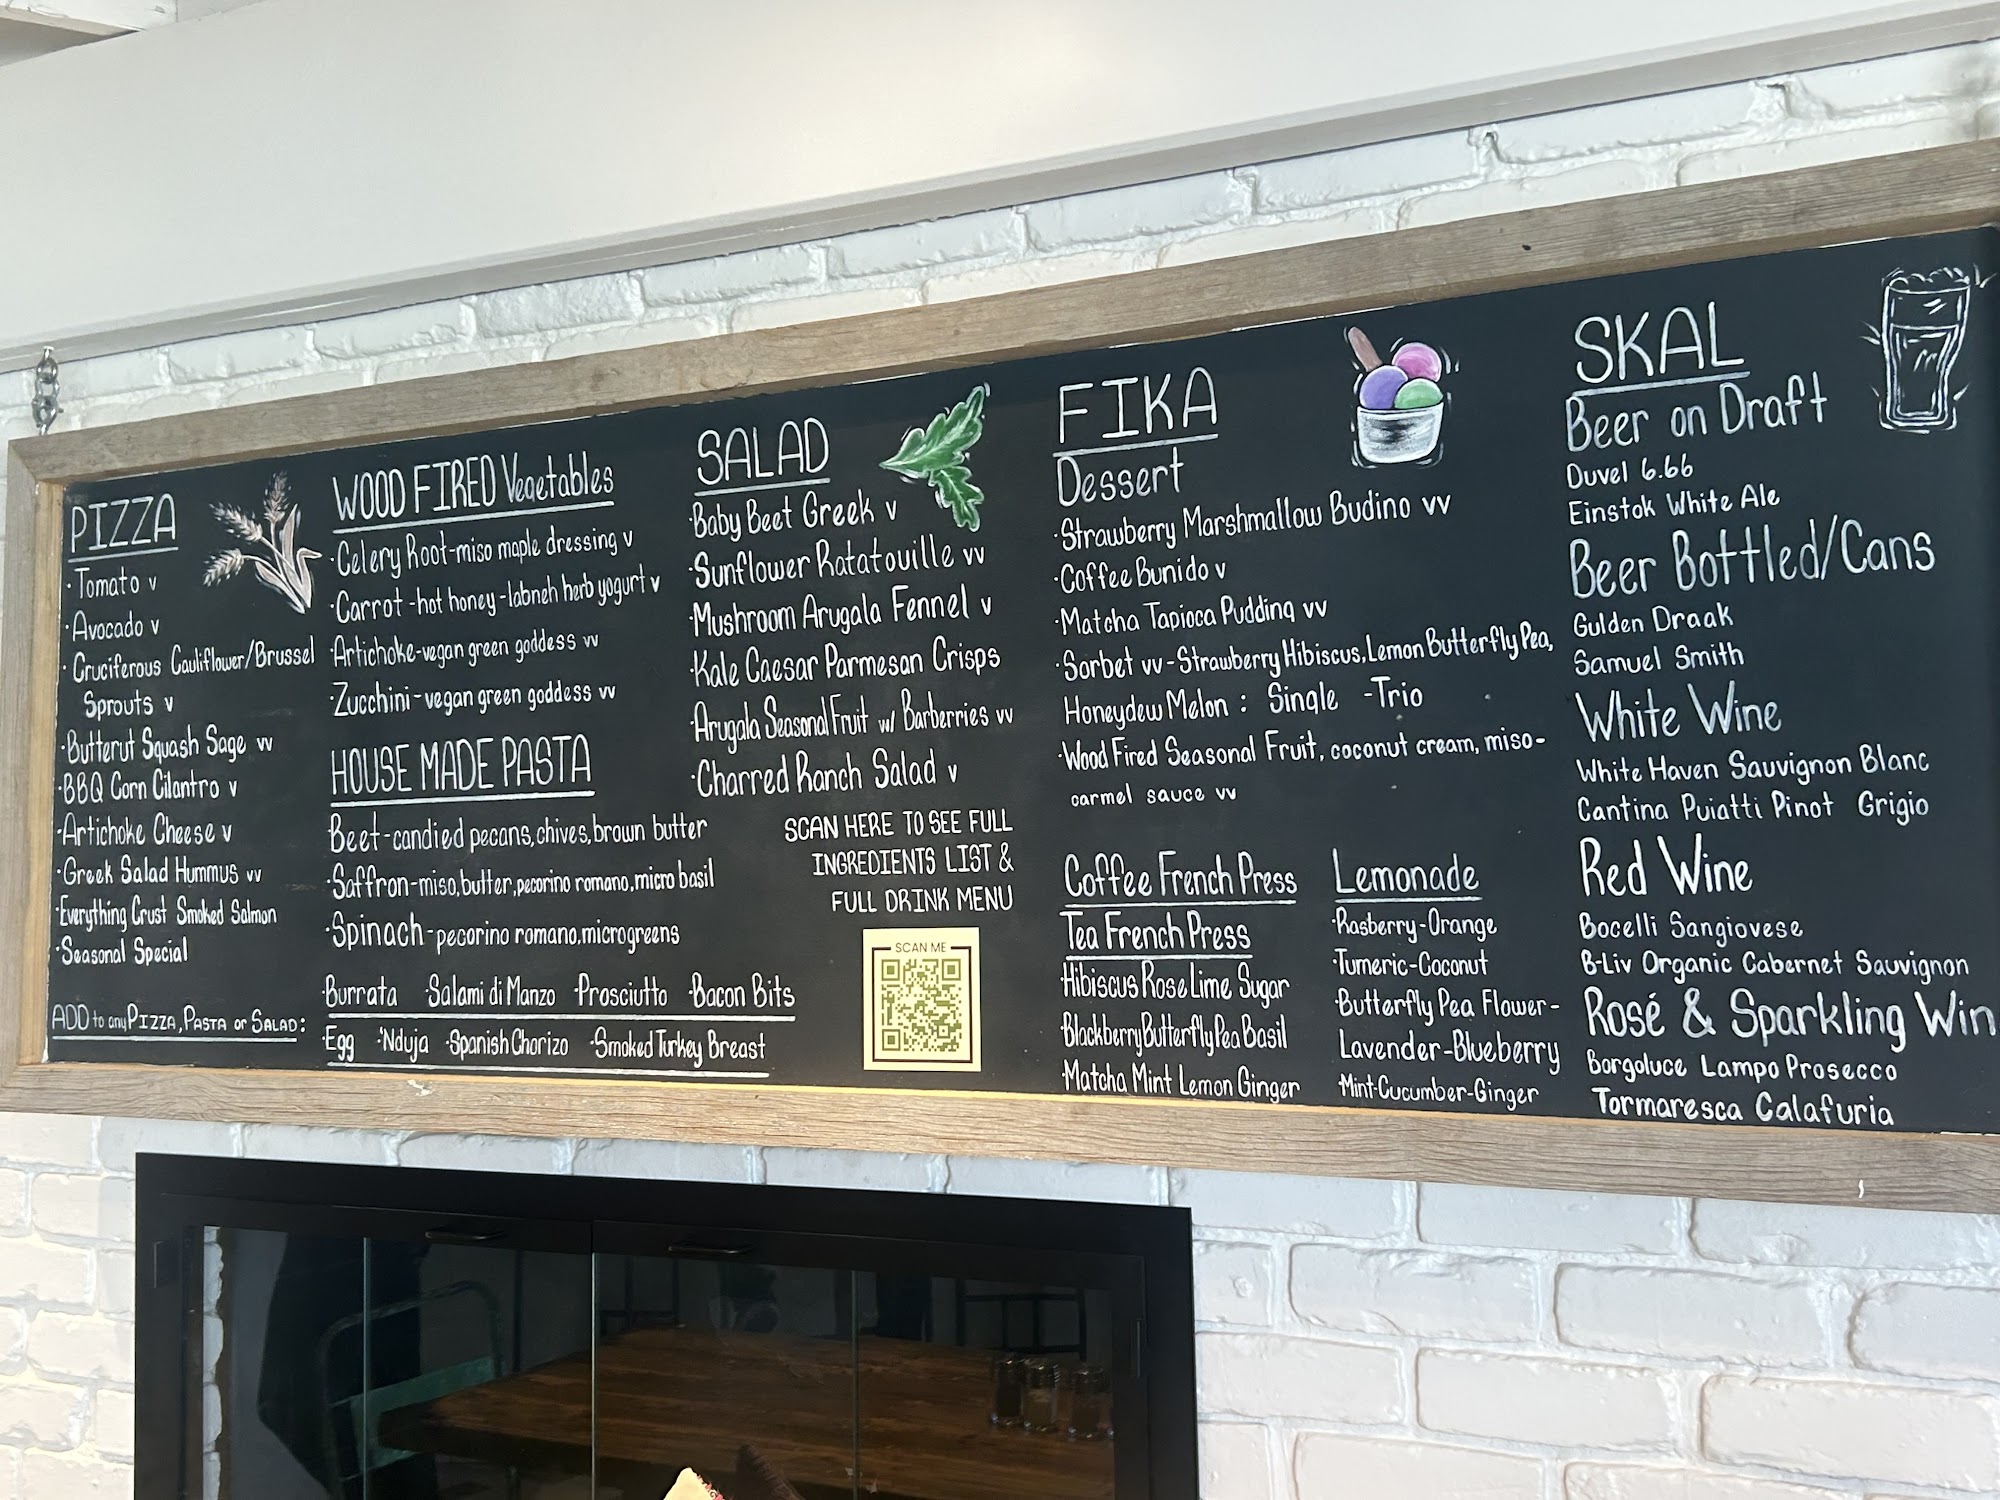 PIZZA
·Tomato v
·Avocado v
·Cruciferous Cauliflower/Brussel
Sprouts v
·Butterut Squash Sage vv
·BBQ Corn Cilantro v
·Artichoke Cheese v
·Greek Salad Hummus vv
·Everything Crust Smoked Salmon
·Seasonal Special
ADD to any PIZZA, PASTA or SALAD:
WOOD FIRED Vegetables
·Celery Root-miso maple dressing v
·Carrot-hot honey-labneh herb yogurt v
·Artichoke-vegan green goddess vv
·Zucchini-vegan green goddess vv
HOUSE MADE PASTA
Beet-candied pecans, chives, brown butter
·Saffron-miso, butter, pecorino romano, micro basil
·Spinach-pecorino romano, microgreens
·Burrata ·Salami di Manzo ·Prosciutto ·Bacon Bits
·Egg ·'Nduja ·Spanish Chorizo ·Smoked Turkey Breast
SALAD
·Baby Beet Greek v
·Sunflower Ratatouille vv
·Mushroom Arugala Fennel v
·Kale Caesar Parmesan Crisps
·Arugala Seasonal Fruit w/ Barberries vv
·Charred Ranch Salad v
SCAN HERE TO SEE FULL
INGREDIENTS LIST &
FULL DRINK MENU
SCAN ME
FIKA
Dessert
·Strawberry Marshmallow Budino vv
·Coffee Bunido v
·Matcha Tapioca Pudding vv
·Sorbet vv-Strawberry Hibiscus, Lemon Butterfly Pea,
Honeydew Melon : Single -Trio
·Wood Fired Seasonal Fruit, coconut cream, miso-
carmel sauce vv
Coffee French Press
Tea French Press
·Hibiscus Rose Lime Sugar
·Blackberry Butterfly Pea Basil
·Matcha Mint Lemon Ginger
Lemonade
·Rasberry-Orange
·Tumeric-Coconut
·Butterfly Pea Flower-
Lavender-Blueberry
·Mint-Cucumber-Ginger
SKAL
Beer on Draft
Duvel 6.66
Einstok White Ale
Beer Bottled/Cans
Gulden Draak
Samuel Smith
White Wine
White Haven Sauvignon Blanc
Cantina Puiatti Pinot Grigio
Red Wine
Bocelli Sangiovese
B-Liv Organic Cabernet Sauvignon
Rosé & Sparkling Win
Borgoluce Lampo Prosecco
Tormaresca Calafuria